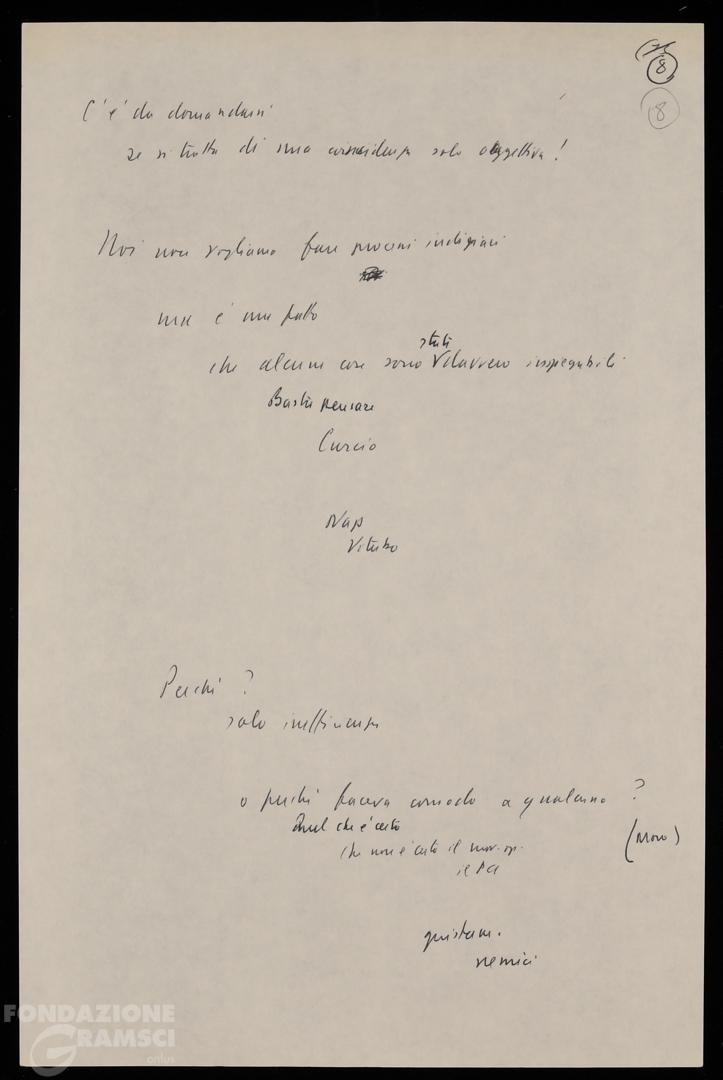 8
8
C'è da domandarsi
se si tratta di una coincidenza solo oggettiva!
Noi non vogliamo fare processi indiziari
ma è un fatto
che alcune cose sono stati davvero inspiegabili
Basta pensare
Curcio
Nap
Viterbo
Perché?
solo inefficienza
o perché faceva comodo a qualcuno?
Quel che è certo
(Moro)
che non è certo il mov. op.
il PCI
giustam.
nemici
FONDAZIONE
GRAMSCI
onlus